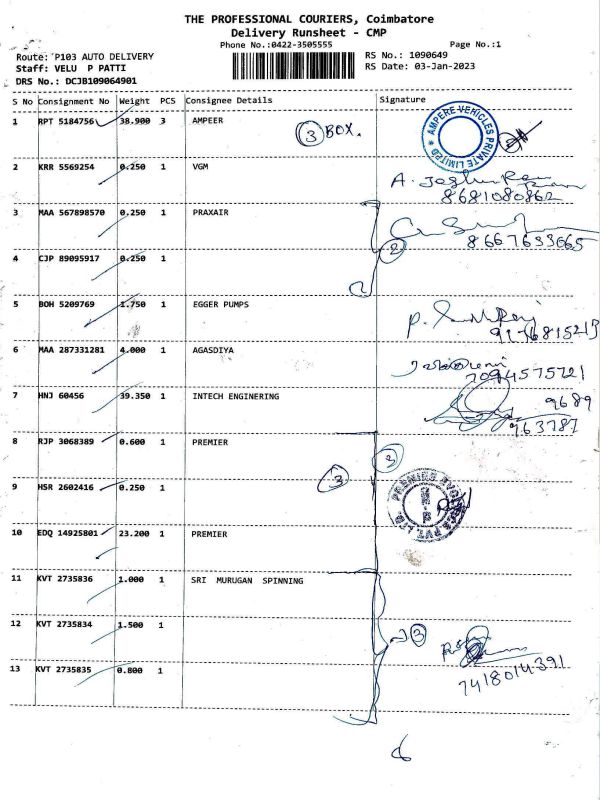 THE PROFESSIONAL COURIERS, Coimbatore
Delivery Runsheet - CMP
Phone No.:0422-3505555 Page No.:1
Route: P103 AUTO DELIVERY RS No.: 1090649
Staff: VELU P PATTI RS Date: 03-Jan-2023
DRS No.: DCJB109064901
S No Consignment No Weight PCS Consignee Details Signature
1 RPT 5184756 38.900 3 AMPEER 3 BOX. AMPERE VEHICLES PRIVATE LIMITED *
2 KRR 5569254 0.250 1 VGM
8681080862
3 MAA 567898570 0.250 1 PRAXAIR
8667633665
4 CJP 89095917 0.250 1 2
5 BOH 5209769 1.750 1 EGGER PUMPS
6 MAA 287331281 4.000 1 AGASDIYA
7094575721
7 HNJ 60456 39.350 1 INTECH ENGINERING 9689
963787
8 RJP 3068389 0.600 1 PREMIER 3
9 HSR 2602416 0.250 1 3
10 EDQ 14925801 23.200 1 PREMIER
11 KVT 2735836 1.000 1 SRI MURUGAN SPINNING
12 KVT 2735834 1.500 1 3
13 KVT 2735835 0.800 1 7418014391